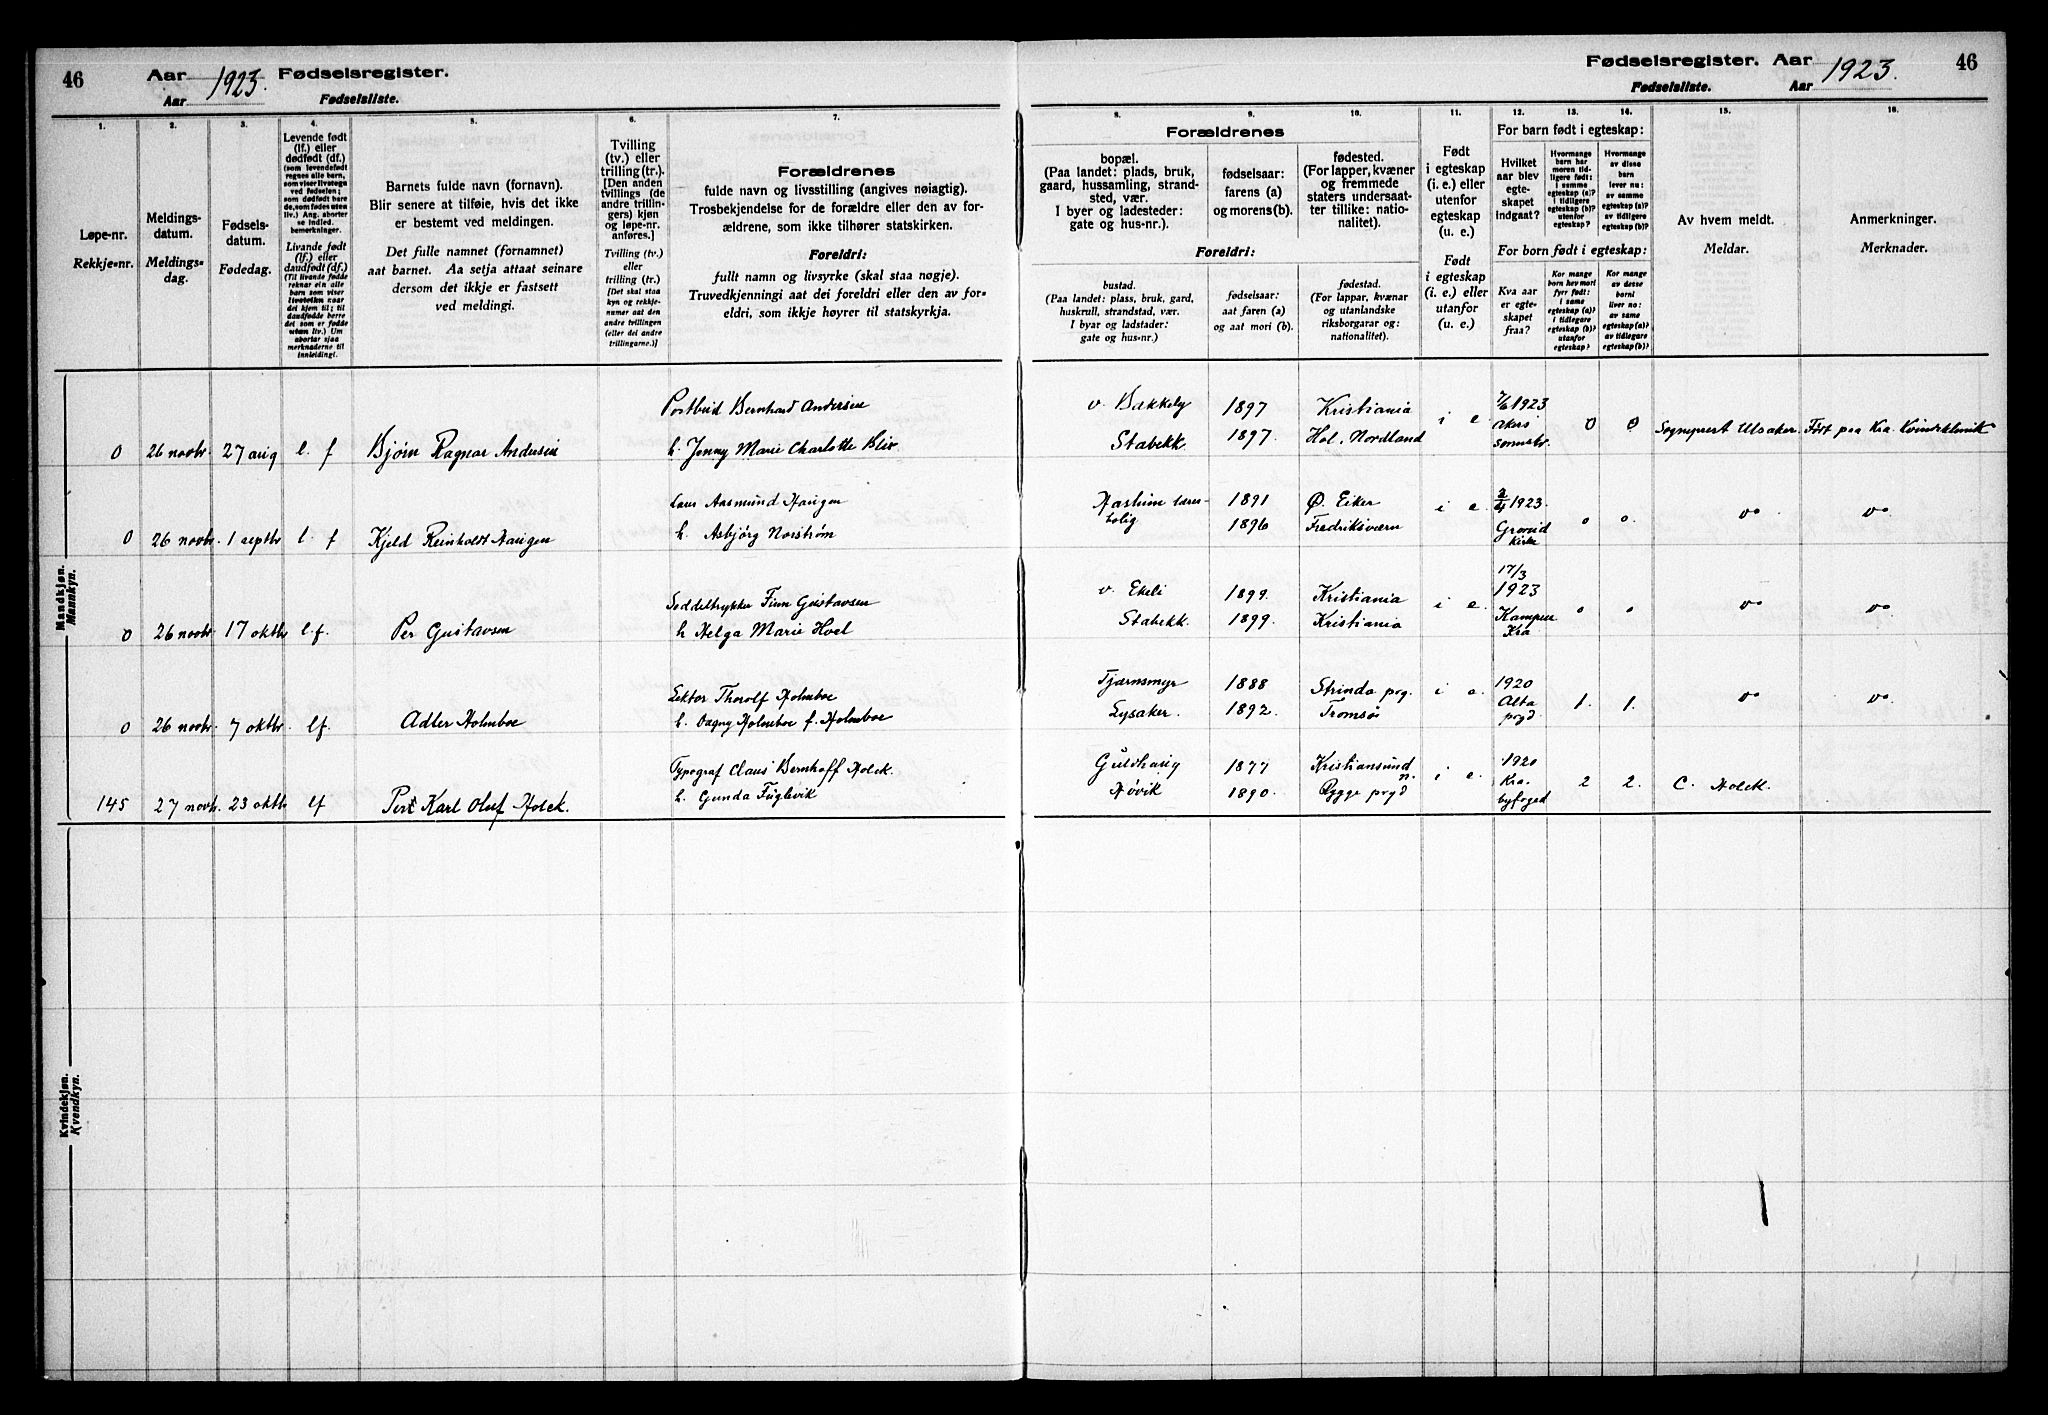 46
Aar 1923. Fødselsregister.
Aar Fødselsliste.
Fødselsregister. Aar 1923.
Fødselsliste. Aar
46
1.
Løpe-nr.
Rekkje-nr.
2.
Meldings-
datum.
Meldings-
dag.
3.
Fødsels-
datum.
Fødedag.
4.
Levende født
(lf.) eller
dødfødt (df.)
(som levendefødt
regnes alle barn,
som viser livstegn
ved fødselen;
som dødfødt bare
de, som fødes uten
liv.) Ang. aborter
se indled.
bemerkninger.
Livande født
(lf.) eller
daudfødt (df.)
(Til livande fødde
reknar ein alle
born som viser
livsteikn naar
dei kjem til; til
daudfødde berre
dei som er fødde
utan liv.) Um
abortar sjaa
merknaderne til
innleiding.
5.
Barnets fulde navn (fornavn).
Blir senere at tilføie, hvis det ikke
er bestemt ved meldingen.
Det fulle namnet (fornamnet)
aat barnet. Aa setja attaat seinare
dersom det ikkje er fastsett
ved meldingi.
6.
Tvilling
(tv.) eller
trilling (tr.).
[Den anden
tvillings (de
andre trillin-
gers) kjøn
og løpe-nr.
anføres.]
Tvilling (tv.)
eller
trilling (tr.)
[Det skal staa
kyn og rekkje-
numer aat den
andre tvillingen
(eller dei andre
trillingarne.)]
7.
Forældrenes
fulde navn og livsstilling (angives nøiagtig).
Trosbekjendelse for de forældre eller den av for-
ældrene, som ikke tilhører statskirken.
Foreldri:
fullt namn og livsyrke (skal staa nøgje).
Truvedkjenningi aat dei foreldri eller den av for-
eldri, som ikkje høyrer til statskyrkja.
Forældrenes
8.
bopæl.
(Paa landet: plads, bruk,
gaard, hussamling, strand-
sted, vær.
I byer og ladesteder:
gate og hus-nr.).
9.
fødselsaar:
farens (a)
og morens (b).
10.
fødested.
(For lapper, kvæner
og fremmede
staters undersaat-
ter tillike: natio-
nalitet).
Foreldri:
bustad.
(Paa landet: plass, bruk, gard,
huskrull, strandstad, vær.
I byar og ladstader:
gate og hus-nr.)
fødselsaar:
aat faren (a)
og aat mori (b).
fødestad.
(For lappar, kvænar
og utanlandske
riksborgarar og:
nationalitet).
11.
Født
i egteskap
(i. e.) eller
utenfor
egteskap
(u. e.)
Født
i egteskap
(i. e.) eller
utanfor
(u. e.)
For barn født i egteskap:
12.
Hvilket
aar blev
egte-
skapet
indgaat?
13.
Hvormange
barn har
moren tid-
ligere født:
i samme
egteskap (a)?
i tidligere
egteskap (b)?
utenfor
egteskap?
14.
Hvormange
av disse
barn
lever nu:
av samme
egteskap (a)?
av tidligere
egteskap (b)?
For born født i egteskap:
Kva aar
er egte-
skapet
fraa?
Kor mange
born hev mori
fyrr født:
i same
egteskap (a)?
i tidlegare
egteskap (b)?
utanfor
egteskap?
Kor mange
av desse
borni
liver no:
av same
egteskap (a)?
av tidlegare
egteskap (b)?
15.
Av hvem meldt.
Meldar.
16.
Anmerkninger.
Merknader.
Mandkjøn.
Mannkyn.
Postbud Bernhard Andersen v. Bakkely 1897 Kristiania i e. 7/6 1923
0 26 novbr. 27 aug l. f Bjørn Ragnar Andersen h. Jenny Marie Charlotte Stabekk 1897. Hol, Nordland Akers 0 0 Sogneprest Ulsaker. Født paa Kra. Kvindeklinik
Aasmund Haugen Haslum 1891 Ø. Eiker i e. 1923.
0 26 novbr. 1 septbr l. f Kjeld Reinholdt Haugen h. Asbjørg Norstrøm bolig 1896 Fredriksværn kirke 0 0. "
Seddeltrykker Finn Gustavsen v. Ekeli 1899. Kristiania i e. 17/3 1923
0 26 novbr. 17 oktbr l. f. Per Gustavsen h Helga Marie Hoel Stabekk. 1899. Kristiania Kampen Kra 0 0 "
Lektor Thorolf Holmboe Tjernsmyr 1888 Strinda prg. i e. 1920
0 26 novbr. 7 oktbr. lf. Adler Holmboe h. Dagny Holmboe f. Holmboe Lysaker. 1892. Tromsø Alta prgd 1. 1. "
Typograf Claus Bernhoff Holck. Guldhaug 1877 Kristiansund n. i e. 1920
145 27 novbr. 23 oktbr. lf Per Karl Oluf Holck. h. Gunda Fuglevik Høvik 1890. Rygge prgd Kra. byfoged 2 2. C. Holck.
Kvindekjøn.
Kvendkyn.